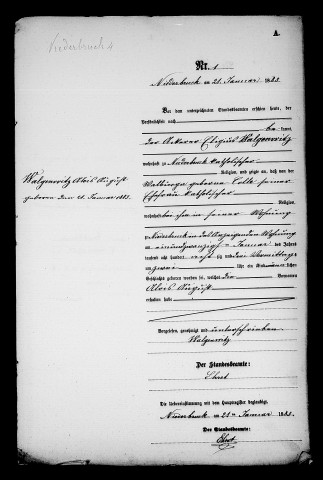 Niederbruck
A.
Nr. 1
Niederbruck am 21. Januar 1883.
Vor dem unterzeichneten Standesbeamten erschien heute, der
Persönlichkeit nach
be kannt,
der Ackerer Eligius Walgenwitz
wohnhaft zu Niederbruck katholischer
Religion, und zeigte an, daß von der
Walburga geborene Tolle seiner
Ehefrau katholischer
Religion,
wohnhaft bei ihm in seiner Wohnung
zu Niederbruck in des Anzeigenden Wohnung
am einundzwanzigsten Januar des Jahres
tausend acht hundert
und der Vormittags
um zwei Uhr ein Kind männlichen
Geschlechts geboren worden sei, welches den Vornamen
Alois August
erhalten habe
Walgenwitz Alois August
geboren den 21. Januar 1883.
Vorgelesen, genehmigt und unterschrieben
Walgenwitz
Der Standesbeamte:
Ehret
Die Uebereinstimmung mit dem Hauptregister beglaubigt
Niederbruck am 21ten Januar 1883.
Der Standesbeamte:
Ehret